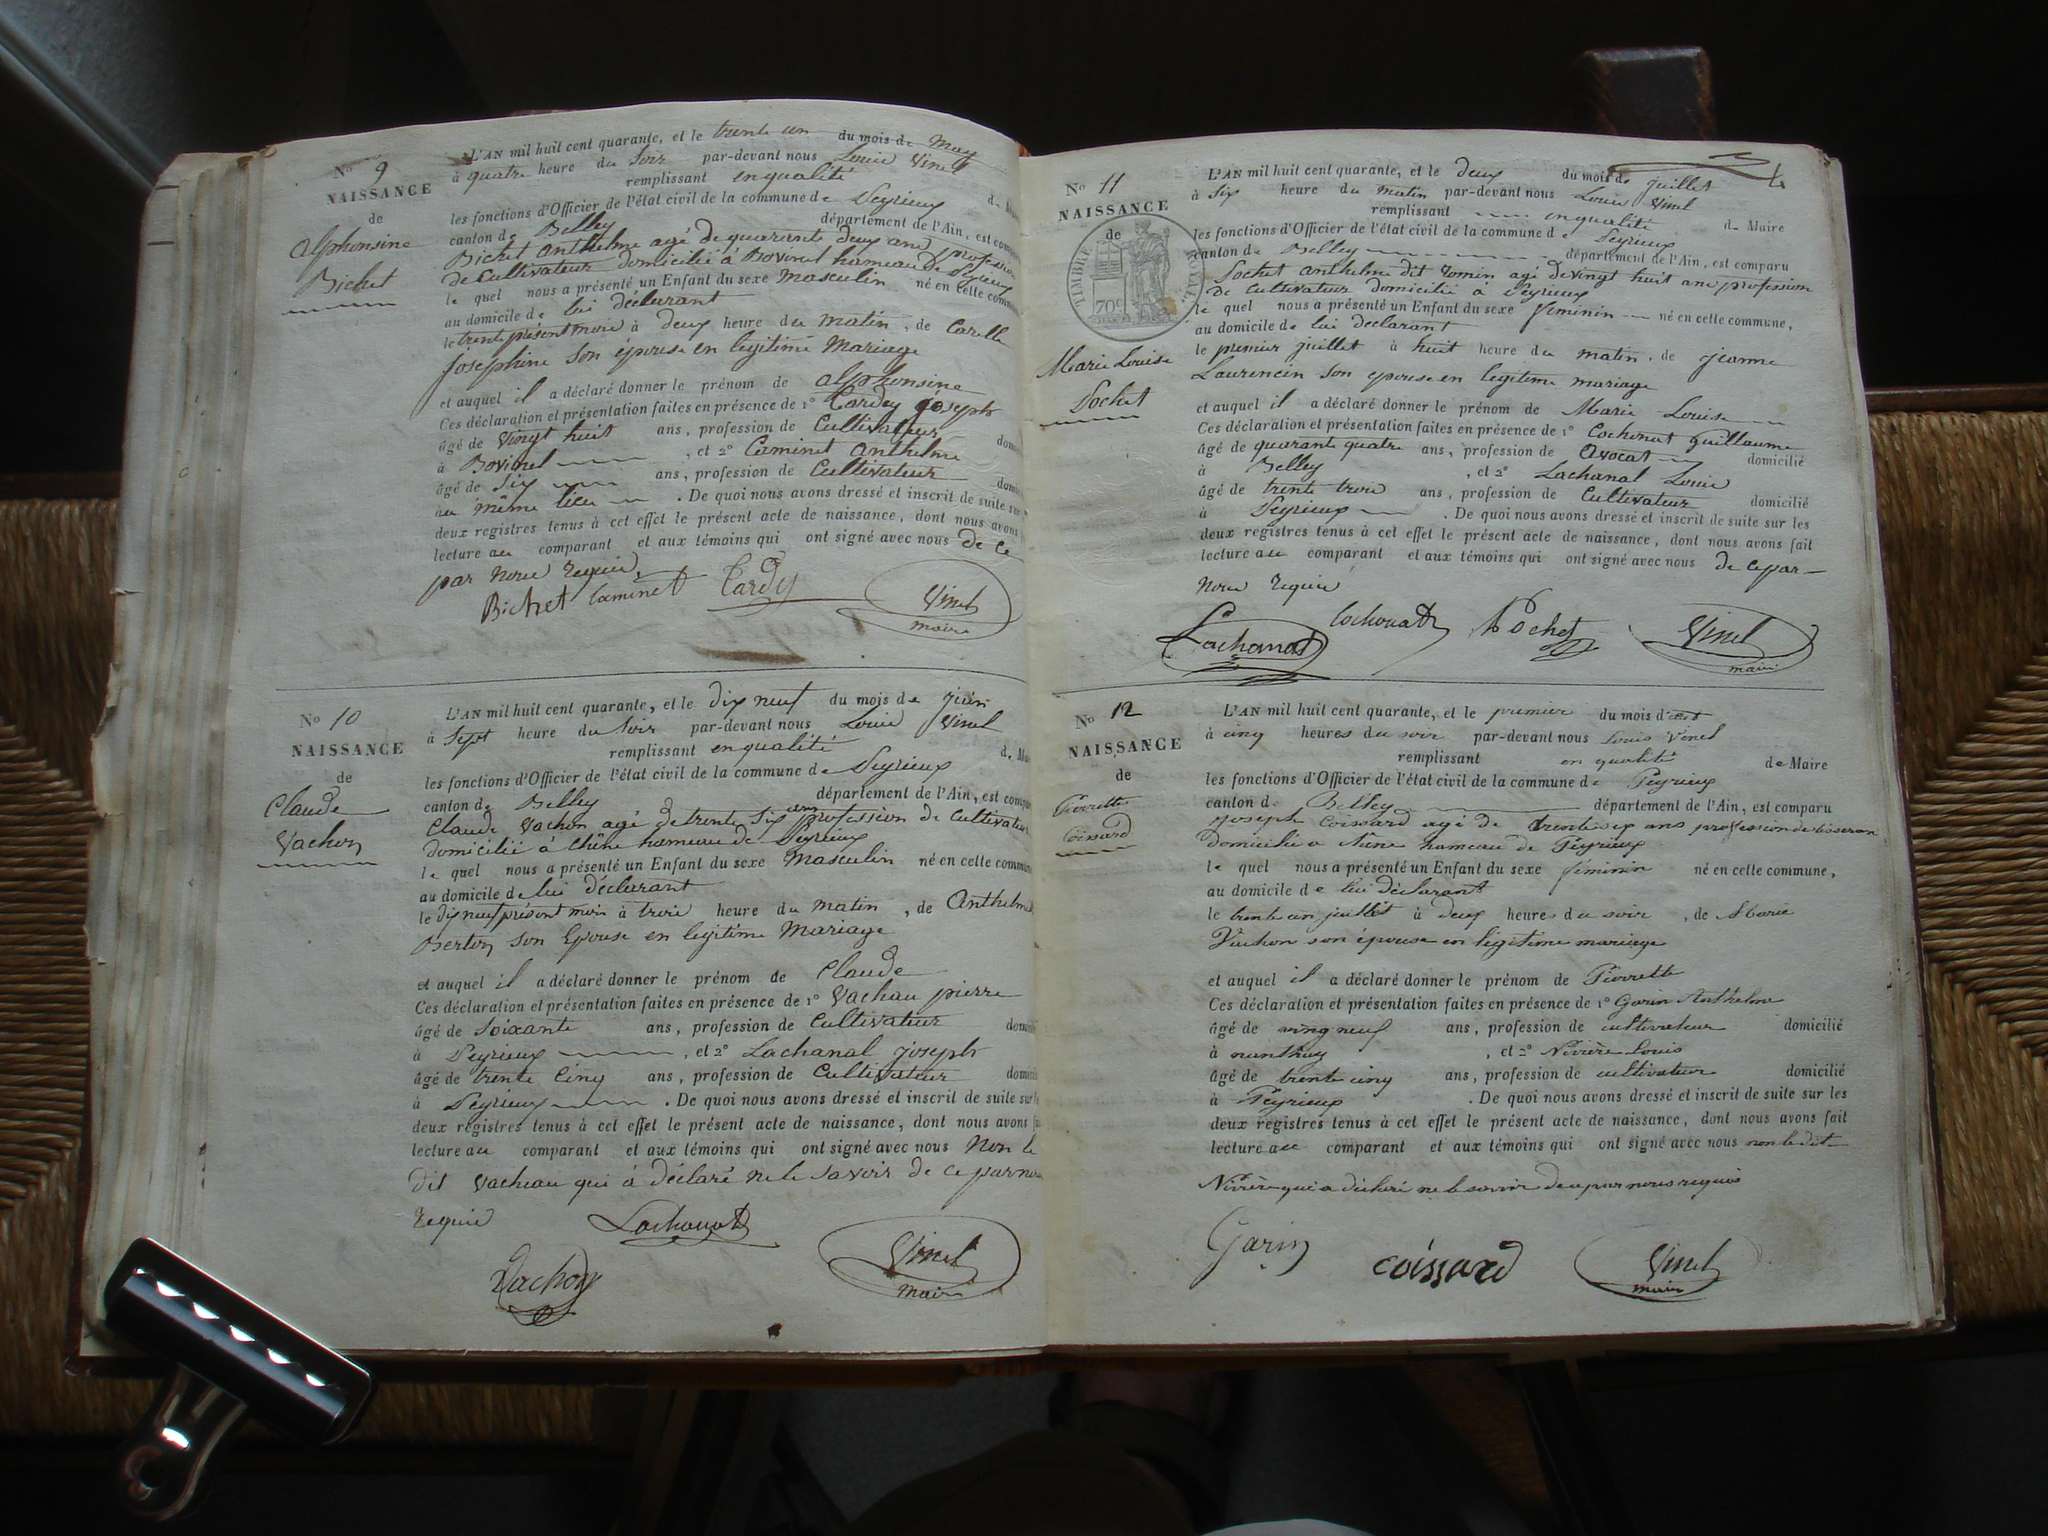 No 9
NAISSANCE
de
alphonsine
Bichet
L'AN mil huit cent quarante, et le trente un du mois de May
à quatre heure du soir par-devant nous Louis Vinel
remplissant en qualité de
les fonctions d'Officier de l'état civil de la commune de Peyrieux
canton de Belley département de l'Ain, est
Bichet anthelme agé de quarante deux ans profession
de Cultivateur domicilié à Bovinel hameau de Peyrieux
le quel nous a présenté un Enfant du sexe Masculin né en cette
au domicile de lui déclarant
le trente présent mois à deux heure du matin, de
josephine son épouse en legitime Mariage
et auquel il a déclaré donner le prénom de alphonsine
Ces déclaration et présentation faites en présence de 1° Cardy joseph
âgé de vingt huit ans, profession de Cultivateur
à Bovinel , et 2° Caminet anthelme
âgé de six ans, profession de Cultivateur
au même lieu . De quoi nous avons dressé et inscrit de suite sur
deux registres tenus à cet effet le présent acte de naissance, dont nous avons
lecture au comparant et aux témoins qui ont signé avec nous de ce
par nous requis
Bichet Caminet Cardy Vinel
maire
No 10
NAISSANCE
de
Claude
Vachon
L'AN mil huit cent quarante, et le dix neuf du mois de juin
à sept heure du soir par-devant nous Louis Vinel
remplissant en qualité de
les fonctions d'Officier de l'état civil de la commune de Peyrieux
canton de Belley département de l'Ain, est
Claude Vachon agé de trente six ans profession de Cultivateur
domicilié à Chine hameau de Peyrieux
le quel nous a présenté un Enfant du sexe Masculin né en cette commune
au domicile de lui déclarant
le dix neuf présent mois à trois heure du matin, de Anthelme
Berton son Epouse en legitime Mariage
et auquel il a déclaré donner le prénom de Claude
Ces déclaration et présentation faites en présence de 1° Vachau pierre
âgé de soixante ans, profession de Cultivateur
à Peyrieux , et 2° Lachanal joseph
âgé de trente cinq ans, profession de Cultivateur
à Peyrieux . De quoi nous avons dressé et inscrit de suite sur
deux registres tenus à cet effet le présent acte de naissance, dont nous avons
lecture au comparant et aux témoins qui ont signé avec nous Non le
dit Vachau qui à déclaré ne le savoir de ce par nous
requis Lachanal
Vachon Vinel
maire
No 11
NAISSANCE
de
TIMBRE ROYAL
70c
Marie Louise
Pochet
L'AN mil huit cent quarante, et le deux du mois de juillet
à six heure du matin par-devant nous Louis Vinel
remplissant en qualité de Maire
les fonctions d'Officier de l'état civil de la commune de Peyrieux
canton de Belley département de l'Ain, est comparu
Pochet anthelme dit agé de vingt huit ans profession
de Cultivateur domicilié à Peyrieux
le quel nous a présenté un Enfant du sexe féminin né en cette commune,
au domicile de lui déclarant
le premier juillet à huit heure du matin, de jeanne
Laurencin son epouse en legitime mariage
et auquel il a déclaré donner le prénom de Marie Louise
Ces déclaration et présentation faites en présence de 1° Cochonat Guillaume
âgé de quarante quatre ans, profession de Avocat domicilié
à Belley , et 2° Lachanal Louis
âgé de trente trois ans, profession de Cultivateur domicilié
à Peyrieux . De quoi nous avons dressé et inscrit de suite sur les
deux registres tenus à cet effet le présent acte de naissance, dont nous avons fait
lecture au comparant et aux témoins qui ont signé avec nous de ce par
nous requis
Lachanal Cochonat Pochet Vinel
maire
No 12
NAISSANCE
de
Pierrette
Coissard
L'AN mil huit cent quarante, et le premier du mois d'août
à cinq heures du soir par-devant nous Louis Vinel
remplissant en qualité de Maire
les fonctions d'Officier de l'état civil de la commune de Peyrieux
canton de Belley département de l'Ain, est comparu
joseph Coissard agé de trente six ans profession de tisseran
domicilié à hameau de Peyrieux
le quel nous a présenté un Enfant du sexe féminin né en cette commune,
au domicile de lui déclarant
le trente un juillet à deux heures du soir, de Marie
Vachon son épouse en légitime mariage
et auquel il a déclaré donner le prénom de Pierrette
Ces déclaration et présentation faites en présence de 1° Garin Anthelme
âgé de vingt neuf ans, profession de cultivateur domicilié
à nanthuy , et 2° Nivière Louis
âgé de trente cinq ans, profession de cultivateur domicilié
à Peyrieux . De quoi nous avons dressé et inscrit de suite sur les
deux registres tenus à cet effet le présent acte de naissance, dont nous avons fait
lecture au comparant et aux témoins qui ont signé avec nous non le dit
Nivière qui a déclaré ne le savoir de ce par nous requis
Garin Coissard Vinel
maire